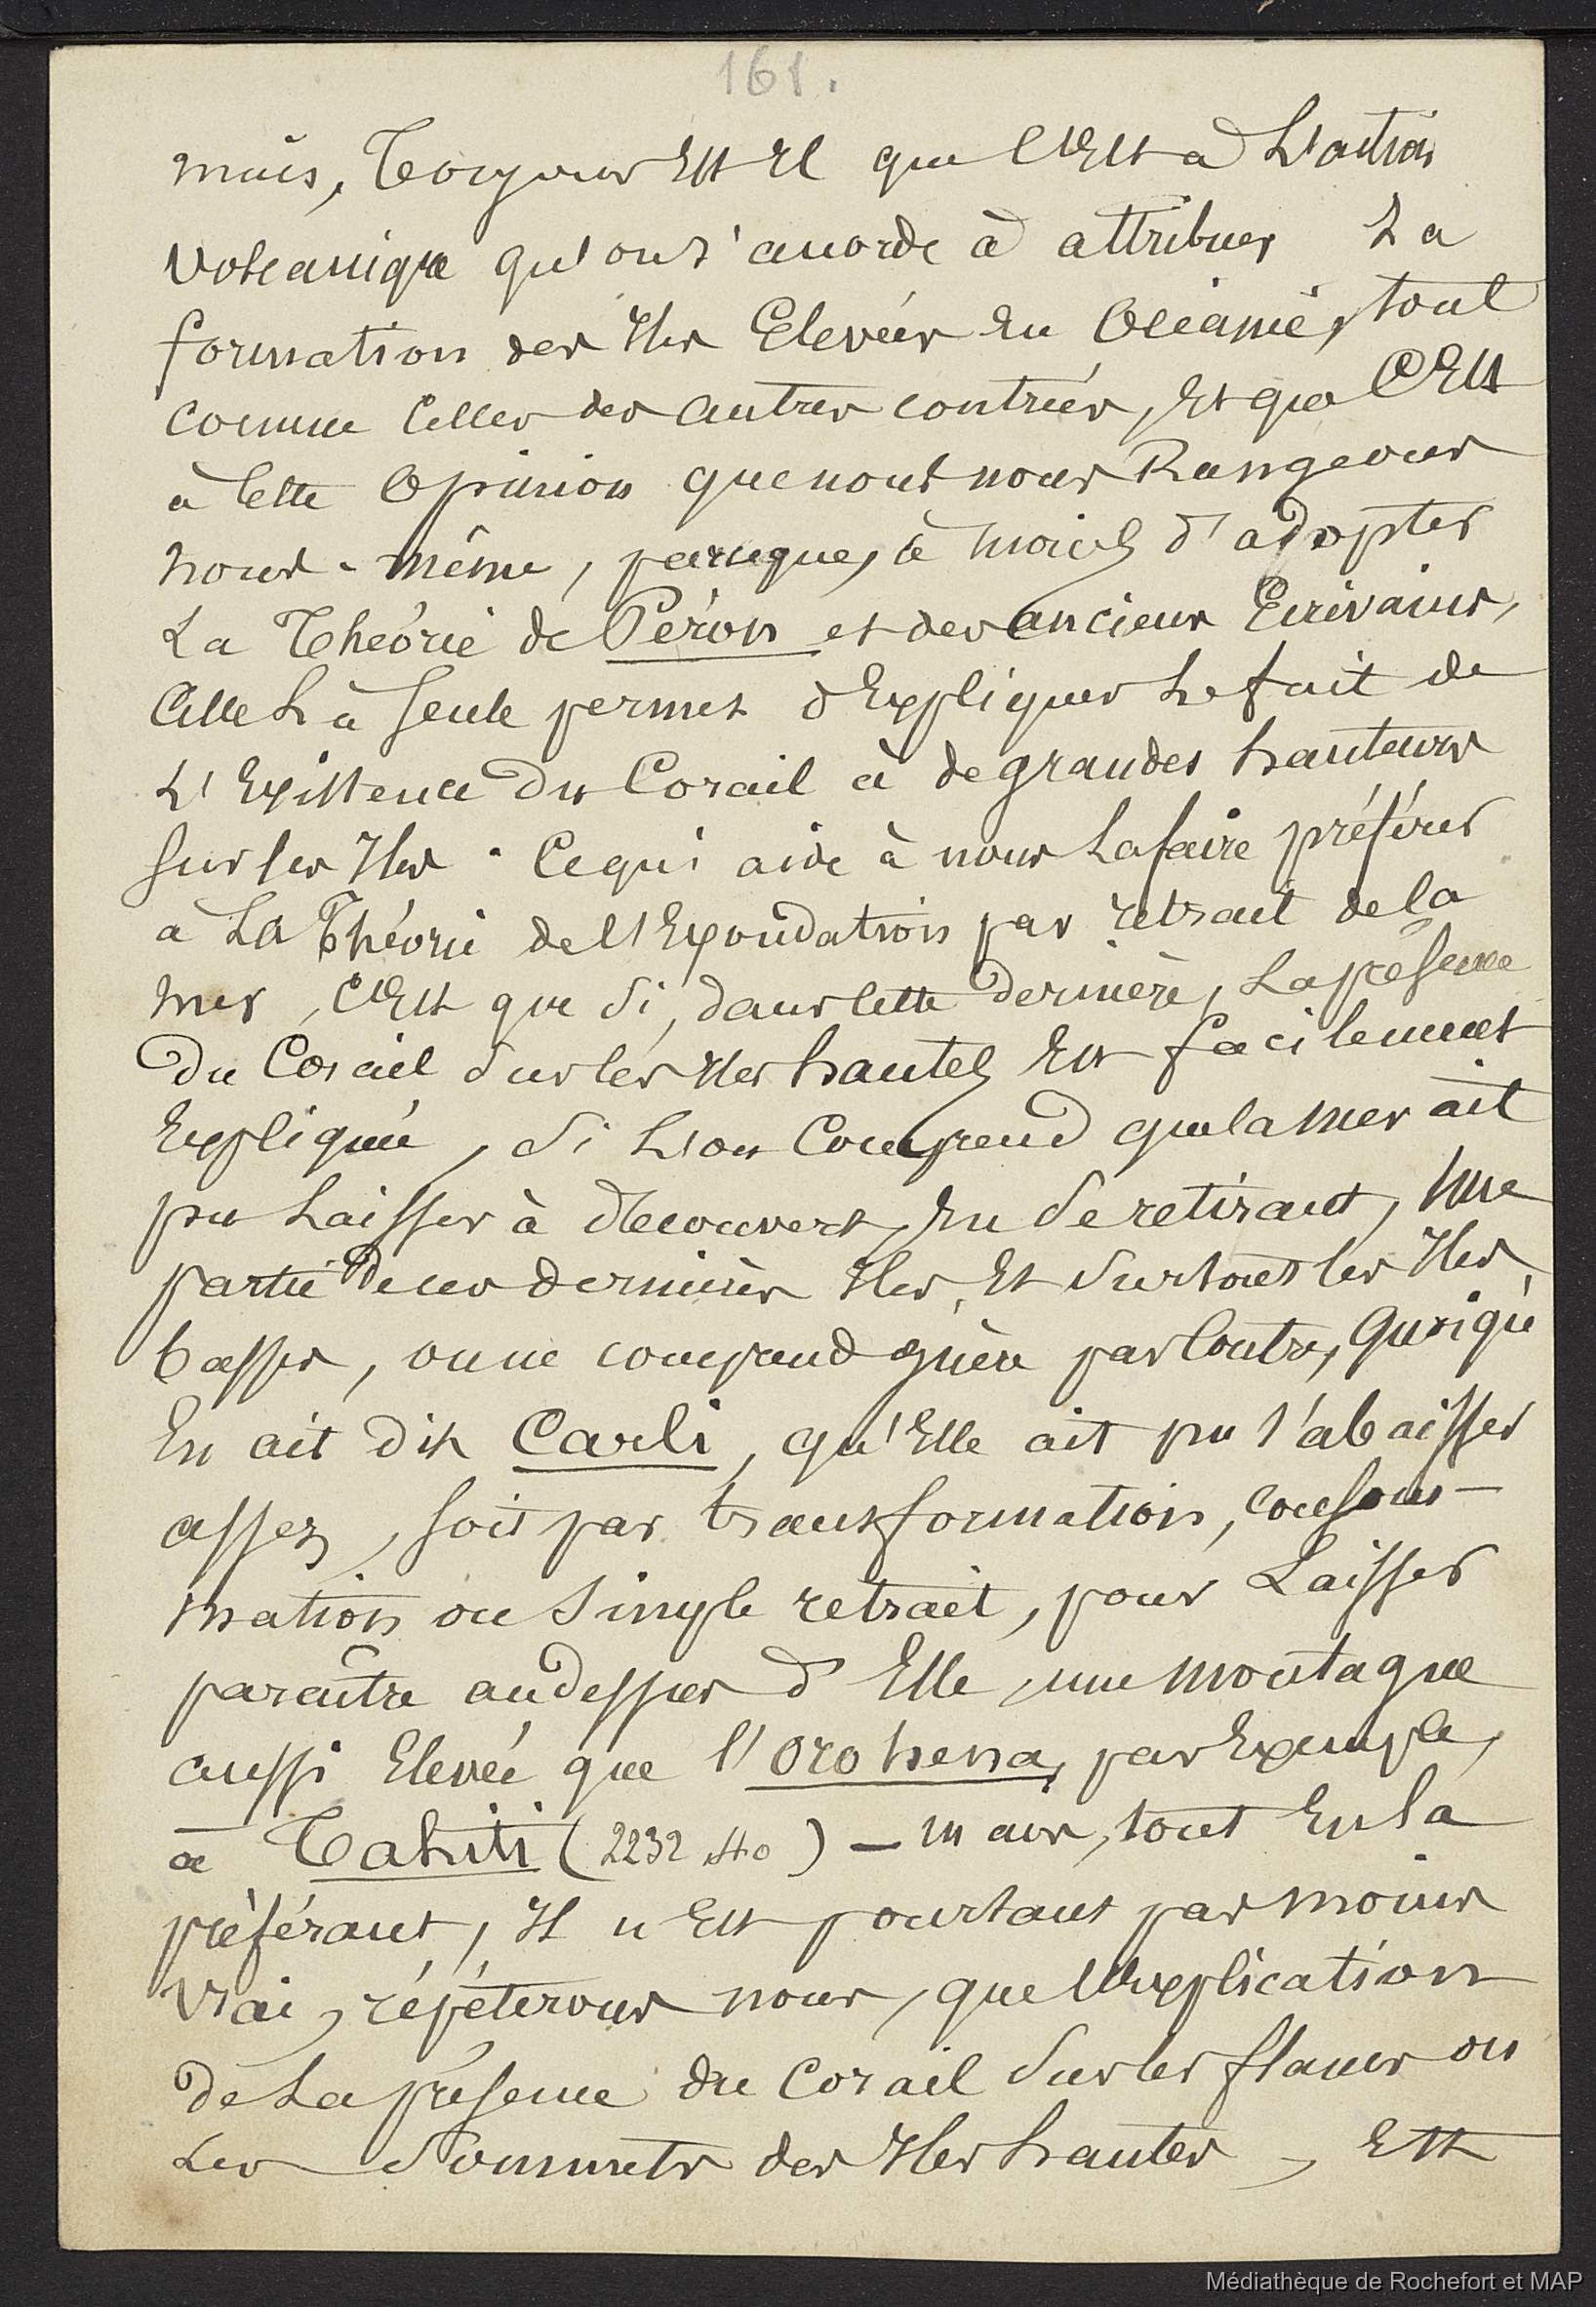 161.
mais, Toujours Est Il que C'Est à L'action
Volcanique qu'on s'accorde à attribuer La
formation des Iles Elevées En Océanie, tout
comme Celles des Autres contrées, Et que C'Est
à Cette Opinion que nous nous Rangeons
nous-même, parceque, à moins d'adopter
La Théorie de Péron et des anciens Ecrivains,
Celle là seule permet d'Expliquer Le fait de
L'Existence Du Corail à de grandes hauteurs
Sur les Iles. Ce qui aide à nous La faire préférer
à La Théorie de l'Exondation par retrait de la
mer, C'Est que Si, dans Cette Dernière, La présence
Du Corail Sur les Iles hautes Est facilement
Expliquée, Si L'on Comprend que la mer ait
pu Laisser à découvert, En Se retirant, Une
partie De ces dernières Iles, Et Surtout les Iles
basses, on ne comprend guère par Contre, Quoique
En ait dit Carli, qu'Elle ait pu s'abaisser
assez, soit par transformation, consom-
mation ou Simple retrait, pour Laisser
paraître audessus d'Elle, une montagne
aussi Elevée que l'Orohena, par Exemple,
à Tahiti (2232 )— mais, tout En la
préférant, Il n'Est pourtant pas moins
Vrai, répéterons nous, que l'Explication
de La présence du Corail Sur les flancs ou
Les Sommets des Iles hautes, Est
Médiathèque de Rochefort et MAP